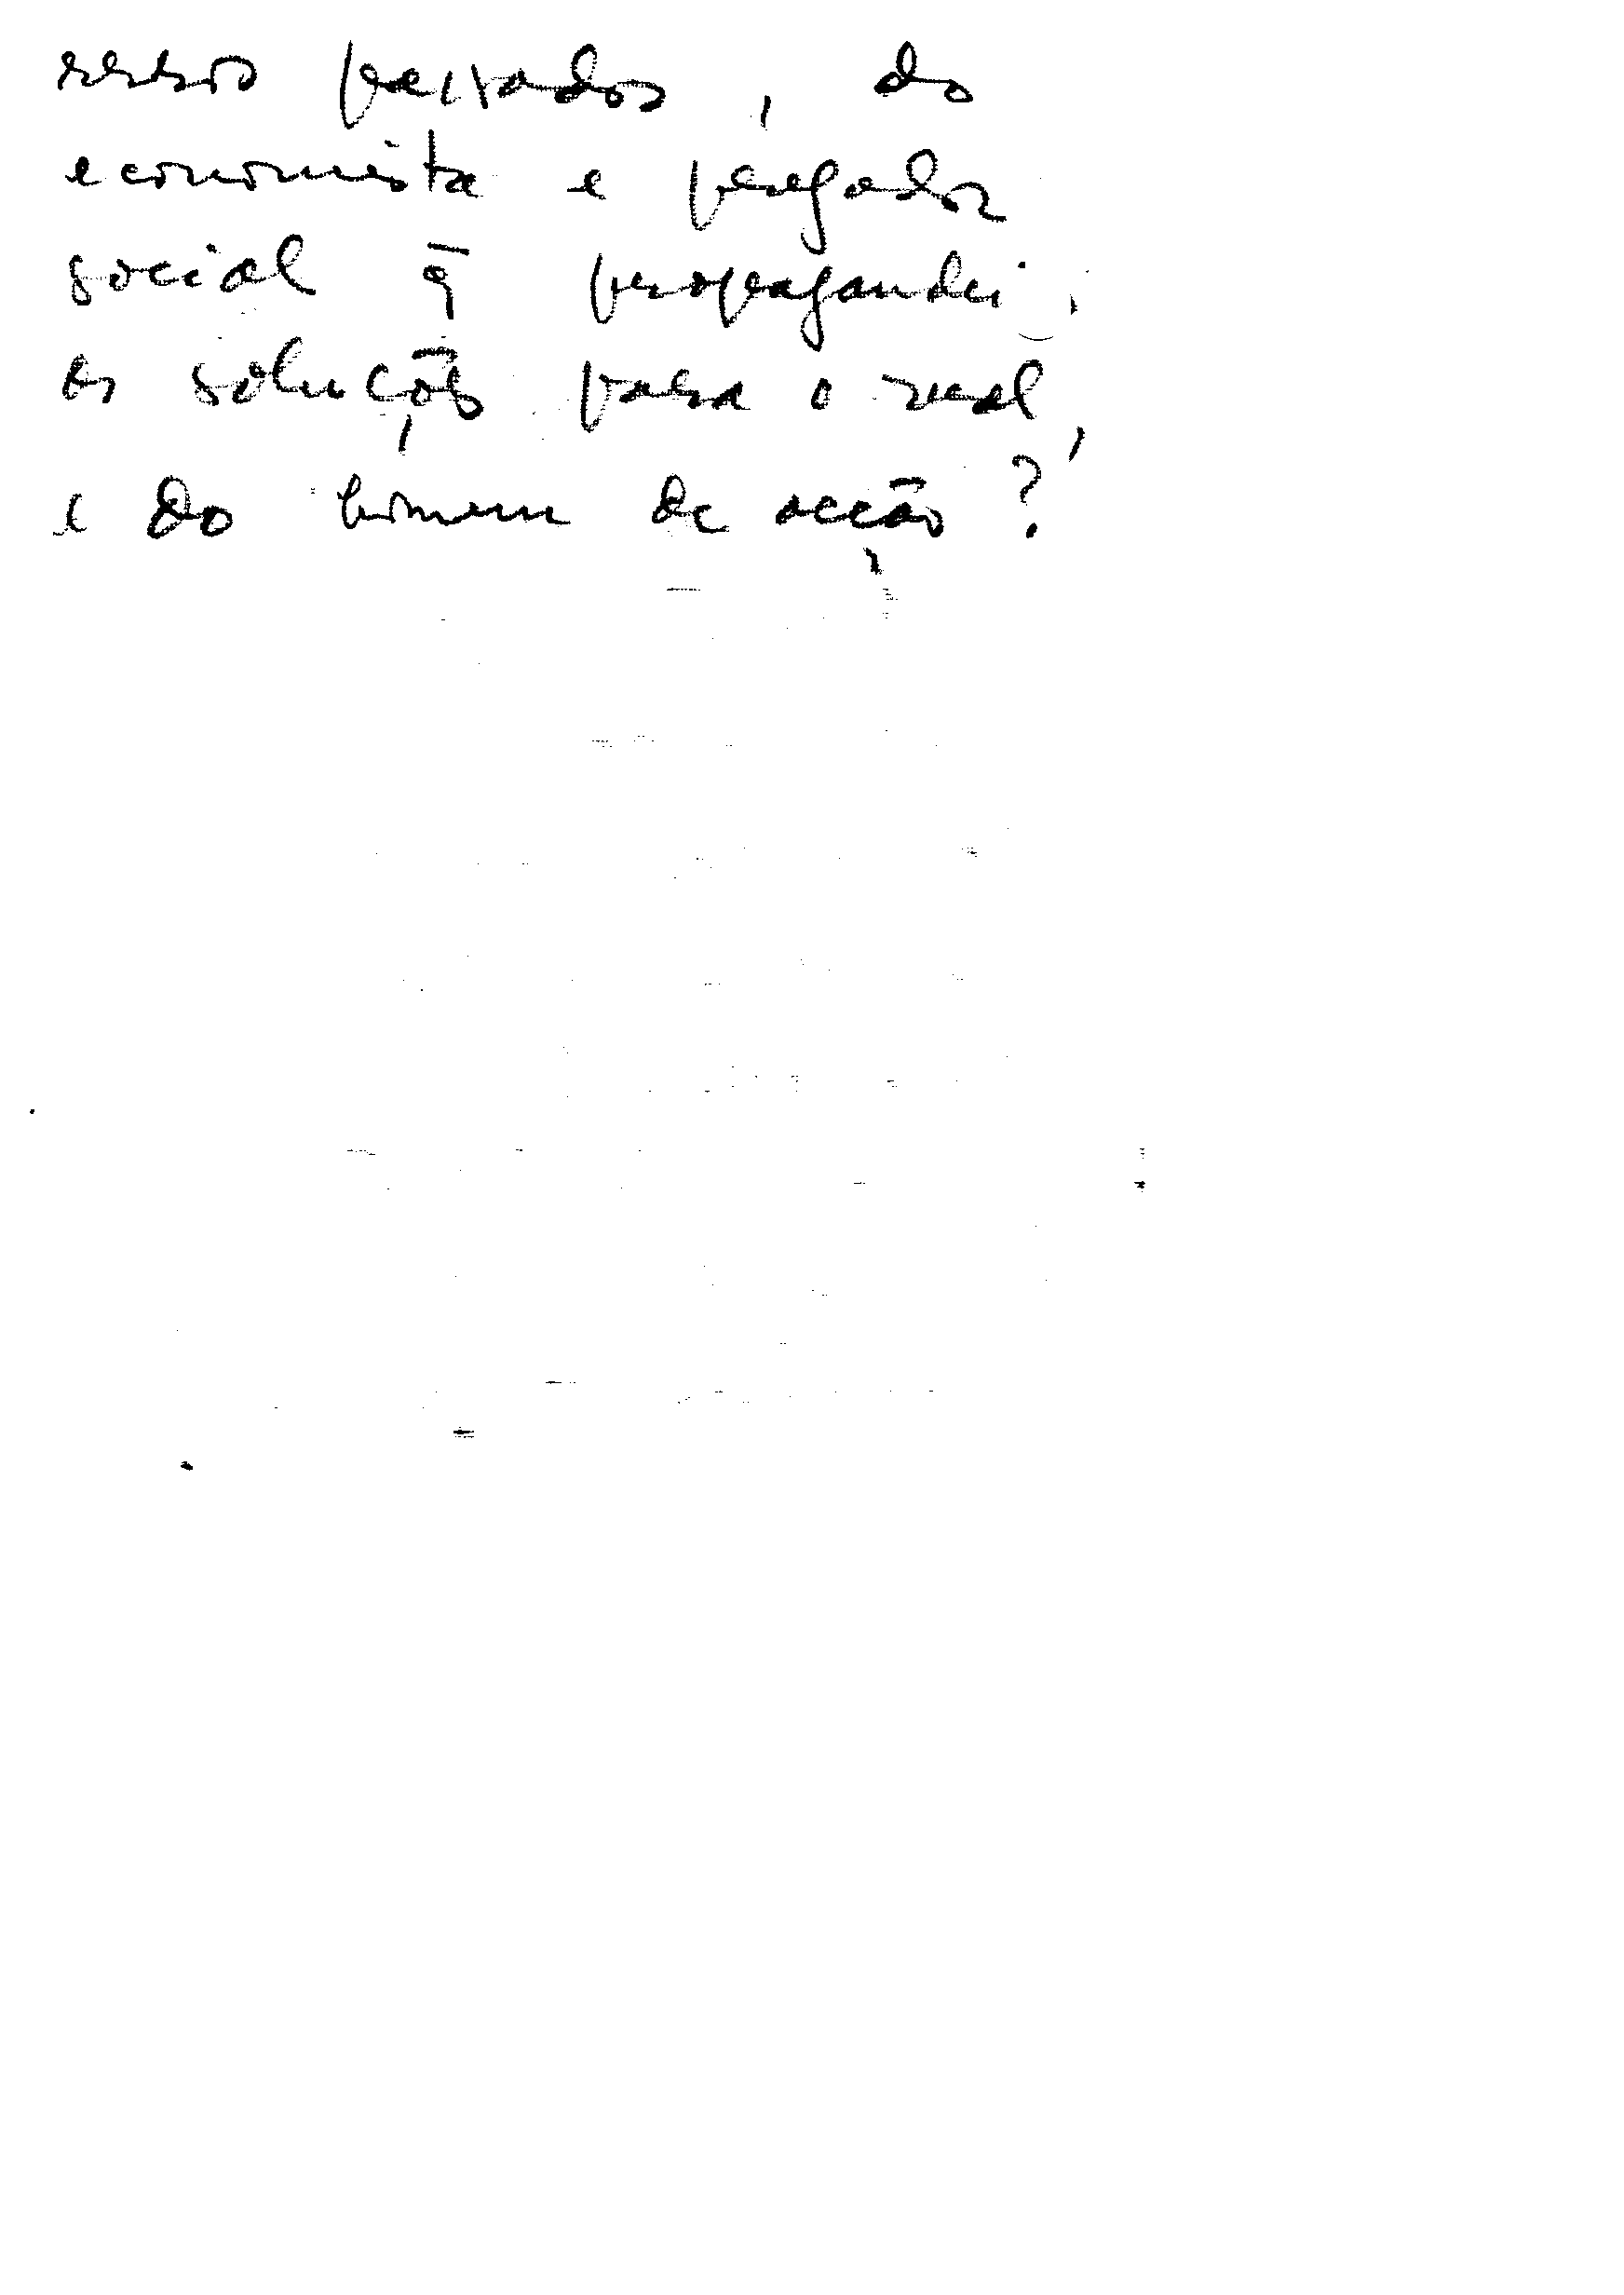 passados, do
economista e pregador
social q̄ propagandei
as soluções para o real,
e do homem de acção?